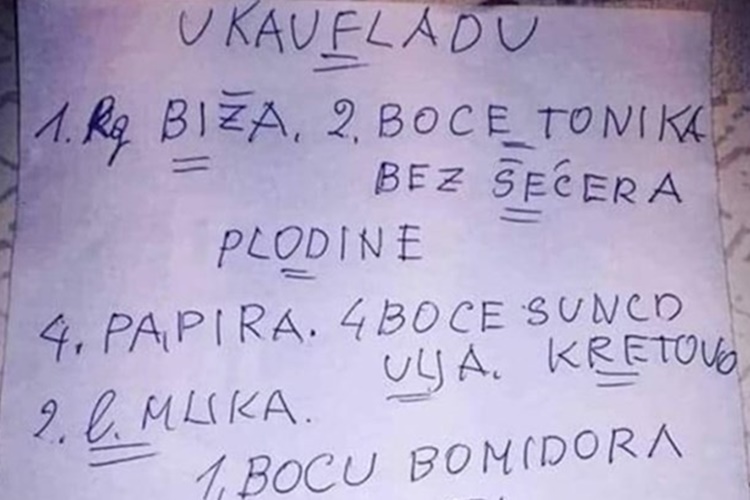 U KAUFLADU
1. Kg BIŽA. 2. BOCE TONIKA
BEZ ŠEĆERA
PLODINE
4. PAPIRA. 4 BOCE SUNCO
ULJA. KRETOVO
2. l. MLIKA.
1. BOCU BOMIDORA